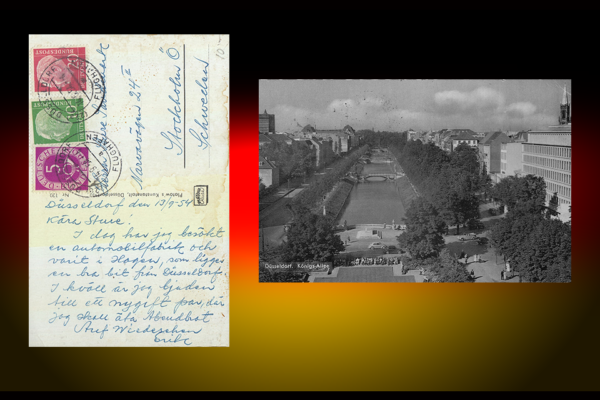 Narvavägen 24 II
Stockholm Ö
Schweden
Düsseldorf den 13/9-54
Kära Sture!
I dag har jag besökt
en automobilfabrik och
varit i Hagen, som ligger
en bra bit från Düsseldorf.
I kväll är jag bjuden
till ett nygift par, där
jag skall äta Abendbrot
Auf Wiedersehen
DEUTSCHE BUNDESPOST
20
10
5
FLUGHAFEN
Düsseldorf. Königs-Allee